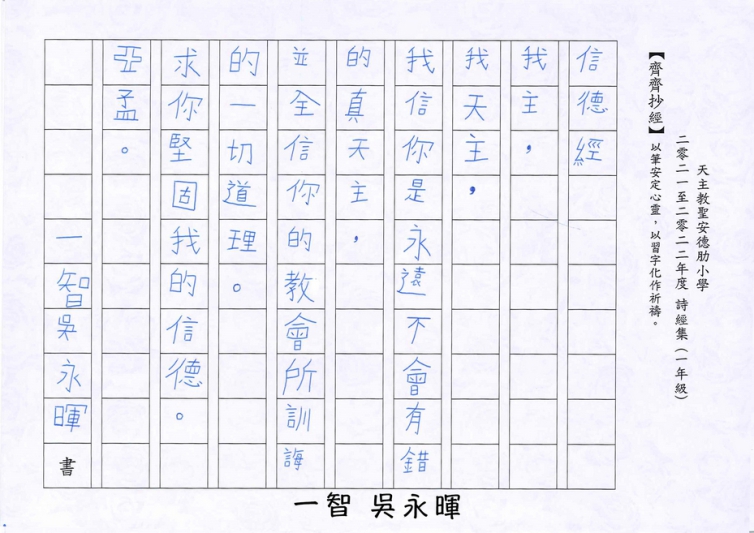 天主教聖安德肋小學
二零二一至二零二二年度 詩經集(一年級)
【齊齊抄經】以筆安定心靈，以習字化作祈禱。
信德經
我主，
我天主，
我信你是永遠不會有錯
的真天主，
並全信你的教會所訓誨
的一切道理。
求你堅固我的信德。
亞孟。
一智吳永暉書
一智 吳永暉